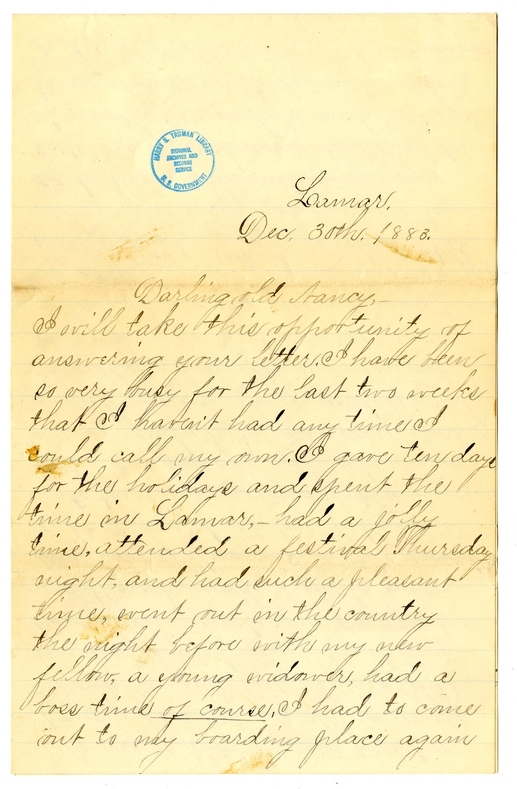 HARRY S. TRUMAN LIBRARY
NATIONAL
ARCHIVES AND
RECORDS
SERVICE
U. S. GOVERNMENT
Lamar,
Dec. 30th. 1883.
Darling old Nancy,-
I will take this opportunity of
answering your letter. I have been
so very busy for the last two weeks
that I haven't had any time I
could call my own. I gave ten days
for the holidays and spent the
time in Lamar,- had a jolly
time, attended a festival Thursday
night, and had such a pleasant
time, went out in the country
the night before with my new
fellow, a young widower, had a
boss time of course. I had to come
out to my boarding place again